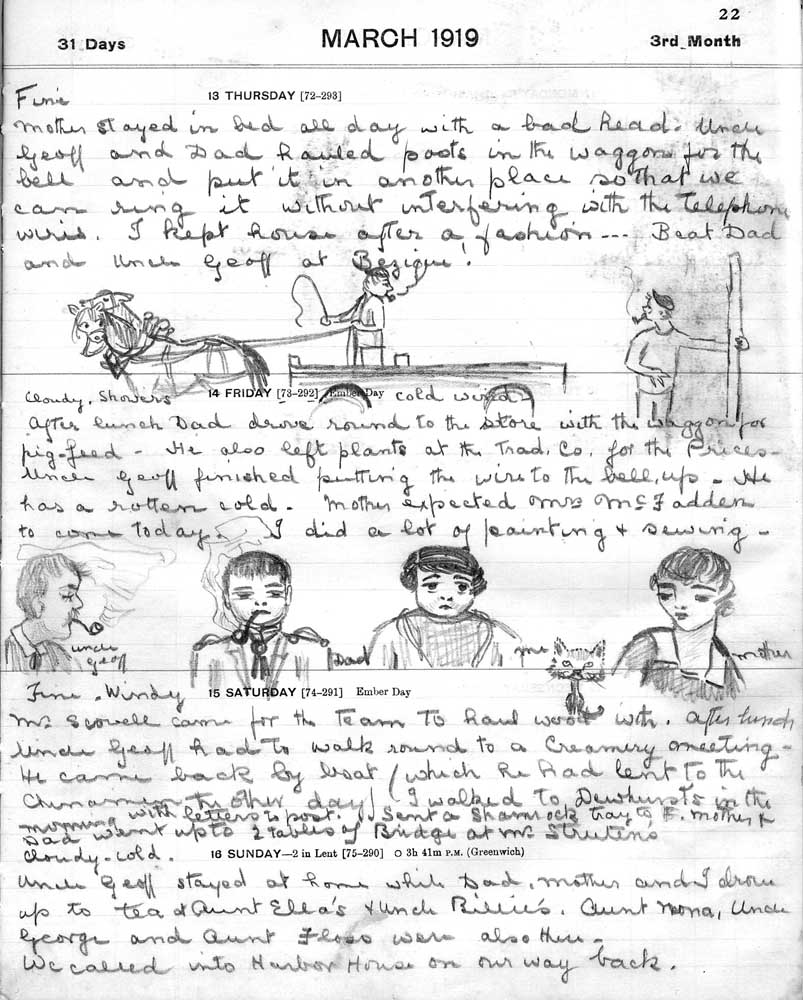 22
31 Days MARCH 1919 3rd Month
Fine 13 THURSDAY [72-293]
Mother stayed in bed all day with a bad head. Uncle
Geoff and Dad hauled posts in the waggon for the
bell and put it in another place so that we
can ring it without interfering with the telephone
wires. I kept house after a fashion --- Beat Dad
and Uncle Geoff at Bezique!
Cloudy, Showers 14 FRIDAY [73-292] Ember Day cold wind
After lunch Dad drove round to the store with the waggon for
pig-feed - He also left plants at the Trad. Co. for the Prices-
Uncle Geoff finished putting the wire to the bell, up - He
has a rotten cold. Mother expected Mrs McFadden
to come today. I did a lot of painting & sewing -
uncle
geoff
Dad
me
mother
Fine. Windy 15 SATURDAY [74-291] Ember Day
Mr. Scovell came for the team to haul wood with. After lunch
Uncle Geoff had to walk round to a Creamery meeting -
He came back by boat (which he had lent to the
Chinamen the other day) I walked to Dewhursts in the
morning with letters to post. Sent a Shamrock tray to F. Mother &
Dad went up to 2 tables of Bridge at Mr.
Cloudy-cold. 16 SUNDAY—2 in Lent [75-290] O 3h 41m P.M. (Greenwich)
Uncle Geoff stayed at home while Dad, mother and I drove
up to tea at Aunt Ella's & Uncle Billie's. Aunt Nona, Uncle
George and Aunt Floss were also there -
We called into Harbor House on our way back.